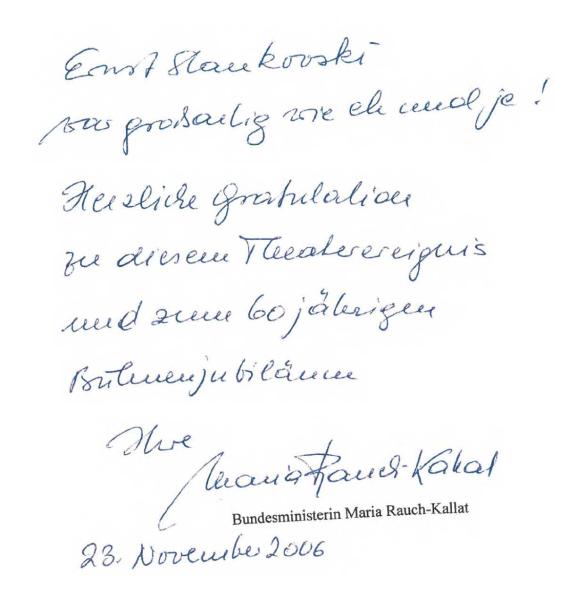 Ernst Stankovski
war großartig wie eh und je!
Herzliche Gratulation
zu diesem Theaterereignis
und zum 60 jährigen
Bühnenjubiläum
Ihre
Maria Rauch-Kallat
Bundesministerin Maria Rauch-Kallat
23. November 2006